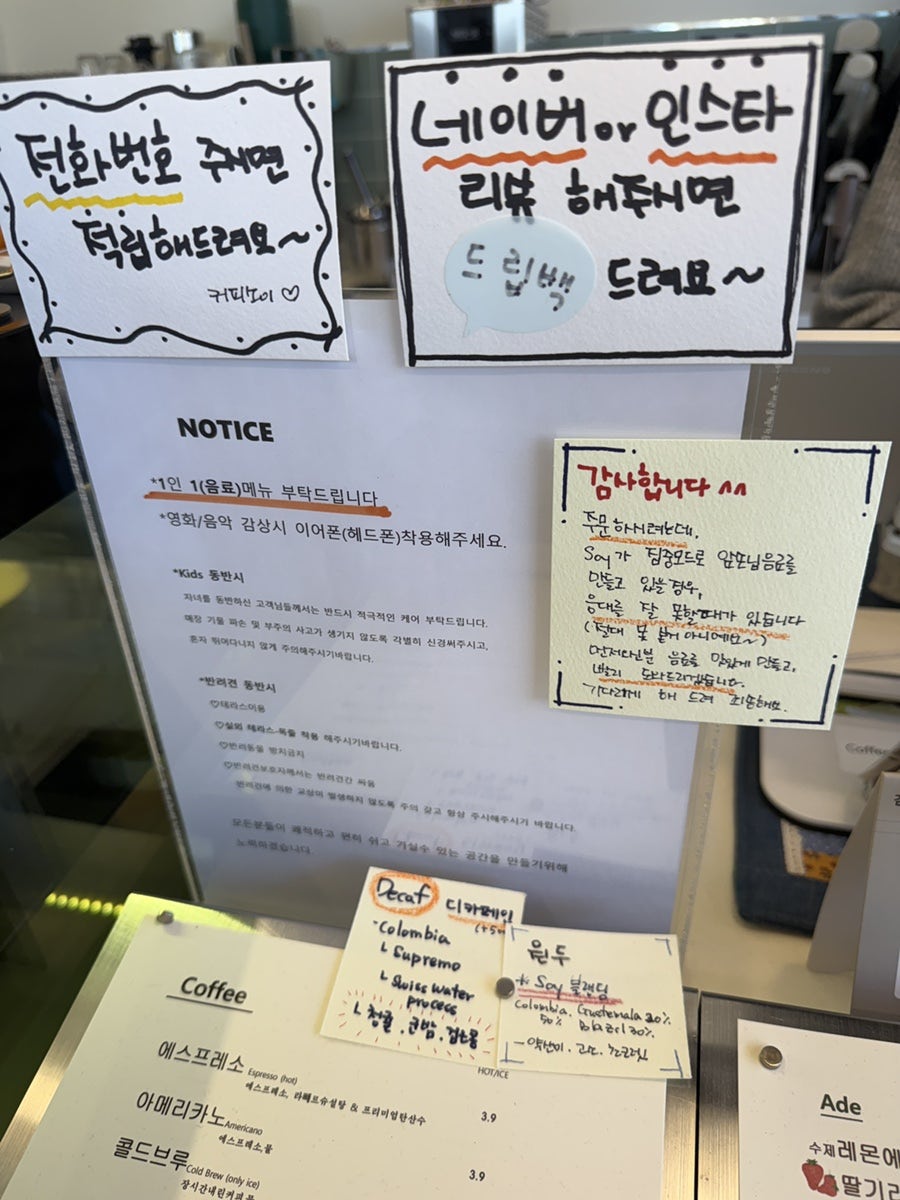 전화번호 주시면
적립해드려요~
커피소이 ♡
네이버 or 인스타
리뷰 해주시면
드립백 드려요~
NOTICE
*1인 1(음료)메뉴 부탁드립니다
*영화/음악 감상시 이어폰(헤드폰)착용해주세요.
*Kids 동반시
자녀를 동반하신 고객님들께서는 반드시 적극적인 케어 부탁드립니다.
매장 기물 파손 및 부주의 사고가 생기지 않도록 각별히 신경써주시고,
혼자 뛰어다니지 않게 주의해주시기바랍니다.
*반려견 동반시
♡테라스이용
♡실외 테라스-목줄 착용 해주시기바랍니다.
♡반려동물 방치금지
♡반려견보호자께서는 반려견간 싸움
반려견에 의한 교상이 발생하지 않도록 주의 갖고 항상 주시해주시기 바랍니다.
모든분들이 쾌적하고 편히 쉬고 가실수 있는 공간을 만들기위해
노력하겠습니다.
감사합니다 ^^
주문하시려는데,
Soy가 집중모드로 앞손님음료를
만들고 있을경우,
응대를 잘 못할때가 있습니다
(절대 못 본거 아니에요~)
먼저오신분 음료를 맛있게 만들고,
빨리 도와드리겠습니다.
기다리게 해 드려 죄송해요.
Decaf 디카페인
·Colombia
ㄴ Supremo
ㄴ Swiss water
process
ㄴ 청귤. 군밤.
원두
* Soy 블랜딩
Colombia. Guatemala 20%
50% Brazil 30%
Coffee
HOT/ICE
에스프레소 Espresso (hot) 3.9
에스프레소, 라빼르슈설탕 & 프리미엄탄산수
아메리카노 Americano
에스프레소,물
콜드브루 Cold Brew (only ice) 3.9
장시간내린커피,물
Coffee
Ade
수제레몬에
딸기라